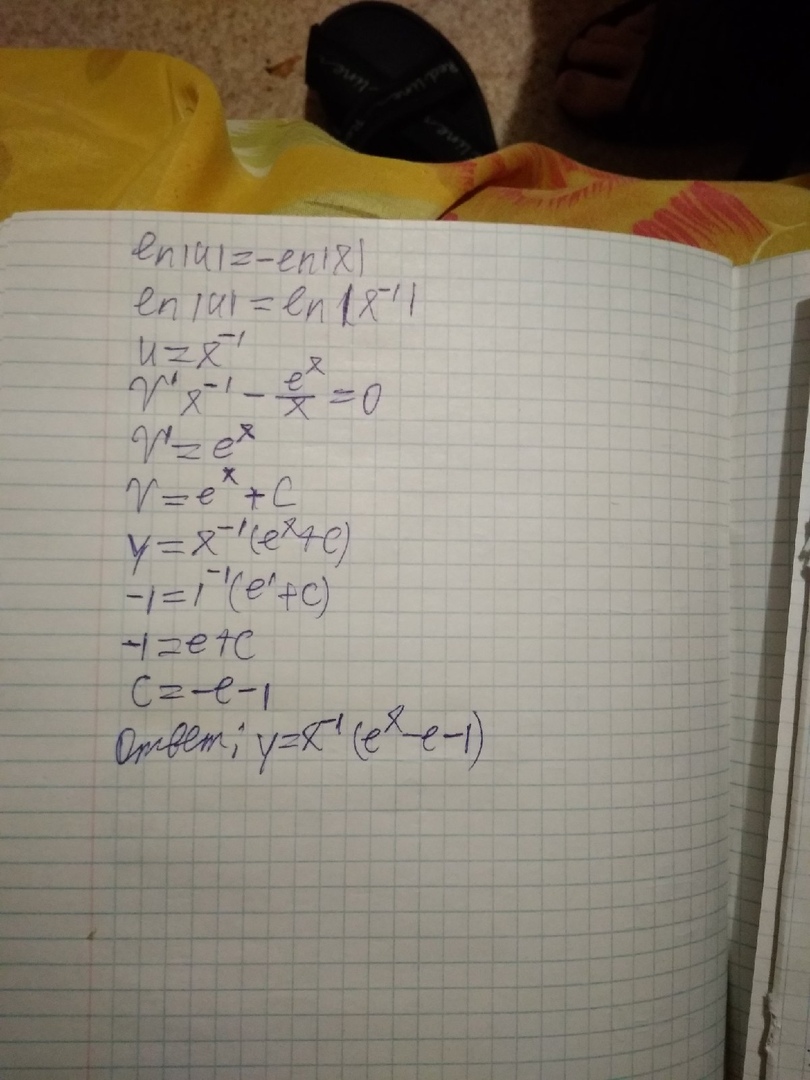 ln|u|=-ln|x|
ln|u|=ln|x⁻¹|
u=x⁻¹
v'x⁻¹-eˣ/x=0
v'=eˣ
v=eˣ+C
y=x⁻¹(eˣ+C)
-1=1⁻¹(e¹+C)
-1=e+C
C=-e-1
Ответ: y=x⁻¹(eˣ-e-1)